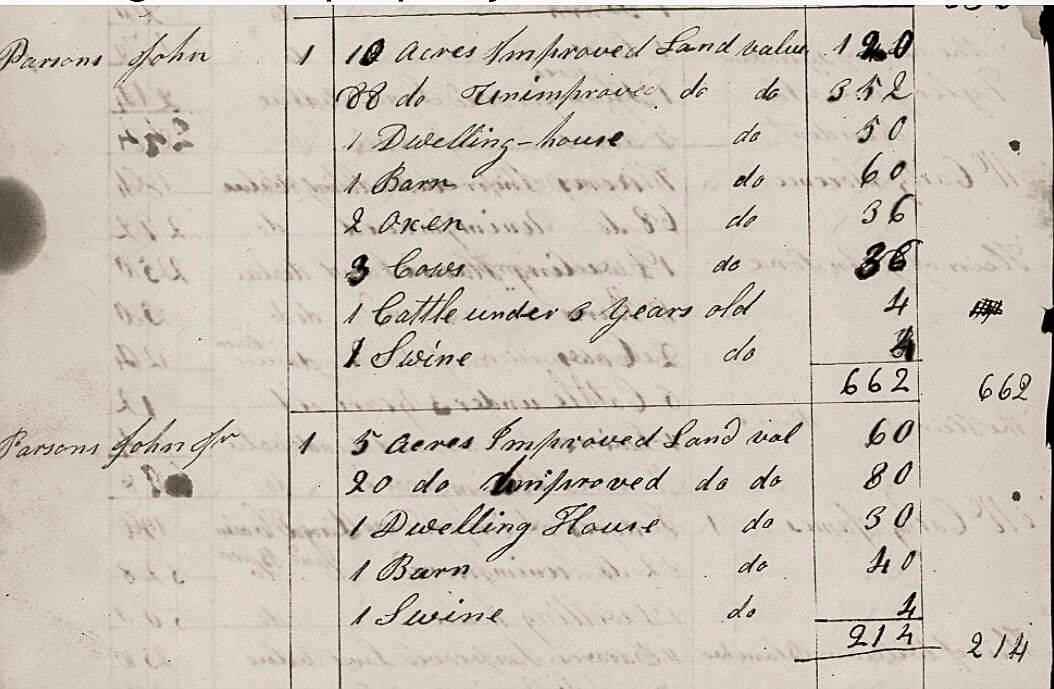 Parsons John 1 10 Acres Improved Land value 120
88 do Unimproved do do 352
1 Dwelling-house do 50
1 Barn do 60
2 Oxen do 36
3 Cows do 36
1 Cattle under 3 Years old 4
1 Swine do 4
662 662
Parsons John Jr 1 5 Acres Improved Land val 60
20 do Unimproved do do 80
1 Dwelling House do 30
1 Barn do 40
1 Swine do 4
214 214